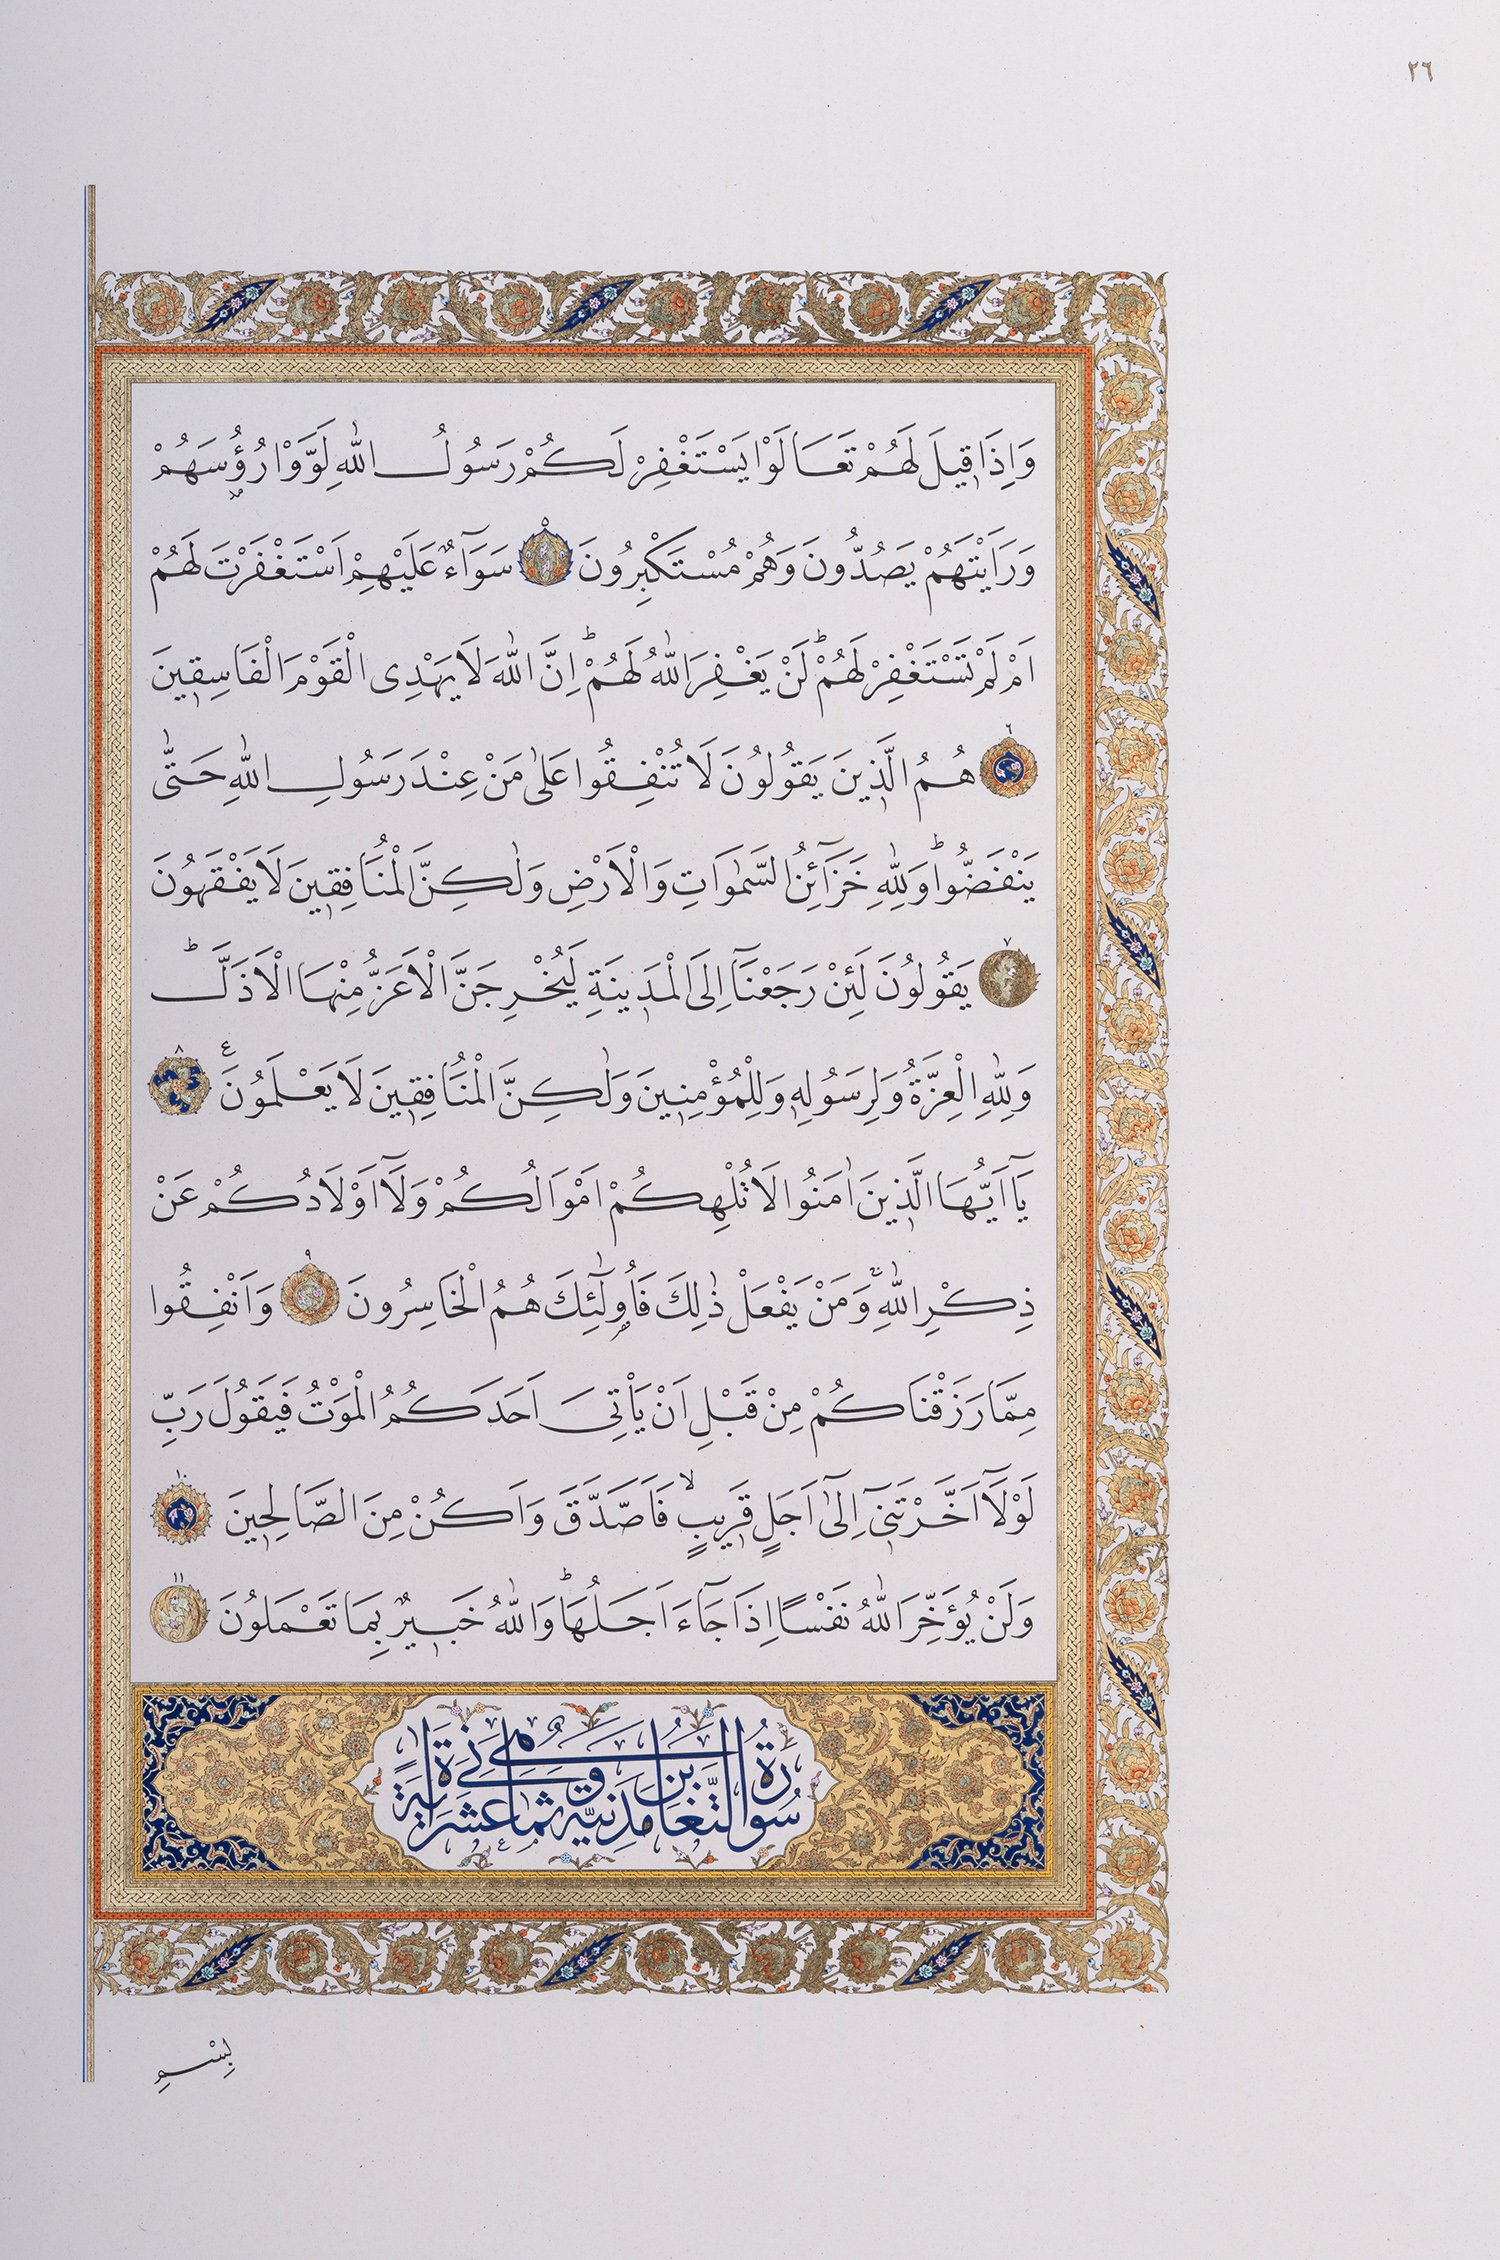 ٢٦
وَاِذَا قٖيلَ لَهُمْ تَعَالَوْا يَسْتَغْفِرْ لَكُمْ رَسُولُ اللّٰهِ لَوَّوْا رُؤُسَهُمْ
وَرَاَيْتَهُمْ يَصُدُّونَ وَهُمْ مُسْتَكْبِرُونَ ٥ سَوَآءٌ عَلَيْهِمْ اَسْتَغْفَرْتَ لَهُمْ
اَمْ لَمْ تَسْتَغْفِرْ لَهُمْؕ لَنْ يَغْفِرَ اللّٰهُ لَهُمْؕ اِنَّ اللّٰهَ لَا يَهْدِى الْقَوْمَ الْفَاسِقٖينَ
٦ هُمُ الَّذٖينَ يَقُولُونَ لَا تُنْفِقُوا عَلٰى مَنْ عِنْدَ رَسُولِ اللّٰهِ حَتّٰى
يَنْفَضُّواؕ وَلِلّٰهِ خَزَآئِنُ السَّمٰوَاتِ وَالْاَرْضِ وَلٰكِنَّ الْمُنَافِقٖينَ لَا يَفْقَهُونَ
٧ يَقُولُونَ لَئِنْ رَجَعْنَآ اِلَى الْمَدٖينَةِ لَيُخْرِجَنَّ الْاَعَزُّ مِنْهَا الْاَذَلَّؕ
وَلِلّٰهِ الْعِزَّةُ وَلِرَسُولِهٖ وَلِلْمُؤْمِنٖينَ وَلٰكِنَّ الْمُنَافِقٖينَ لَا يَعْلَمُونَ ع ٨
يَآ اَيُّهَا الَّذٖينَ اٰمَنُوا لَا تُلْهِكُمْ اَمْوَالُكُمْ وَلَآ اَوْلَادُكُمْ عَنْ
ذِكْرِ اللّٰهِۚ وَمَنْ يَفْعَلْ ذٰلِكَ فَاُولٰٓئِكَ هُمُ الْخَاسِرُونَ ٩ وَاَنْفِقُوا
مِمَّا رَزَقْنَاكُمْ مِنْ قَبْلِ اَنْ يَاْتِىَ اَحَدَكُمُ الْمَوْتُ فَيَقُولَ رَبِّ
لَوْلَآ اَخَّرْتَنٖىٓ اِلٰٓى اَجَلٍ قَرٖيبٍۙ فَاَصَّدَّقَ وَاَكُنْ مِنَ الصَّالِحٖينَ ١٠
وَلَنْ يُؤَخِّرَ اللّٰهُ نَفْسًا اِذَا جَآءَ اَجَلُهَاؕ وَاللّٰهُ خَبٖيرٌ بِمَا تَعْمَلُونَ ١١
سُورَةُ التَّغَابُنِ مَدَنِيَّةٌ وَهِيَ ثَمَانِيَ عَشْرَةَ اٰيَةً
بِسْمِ